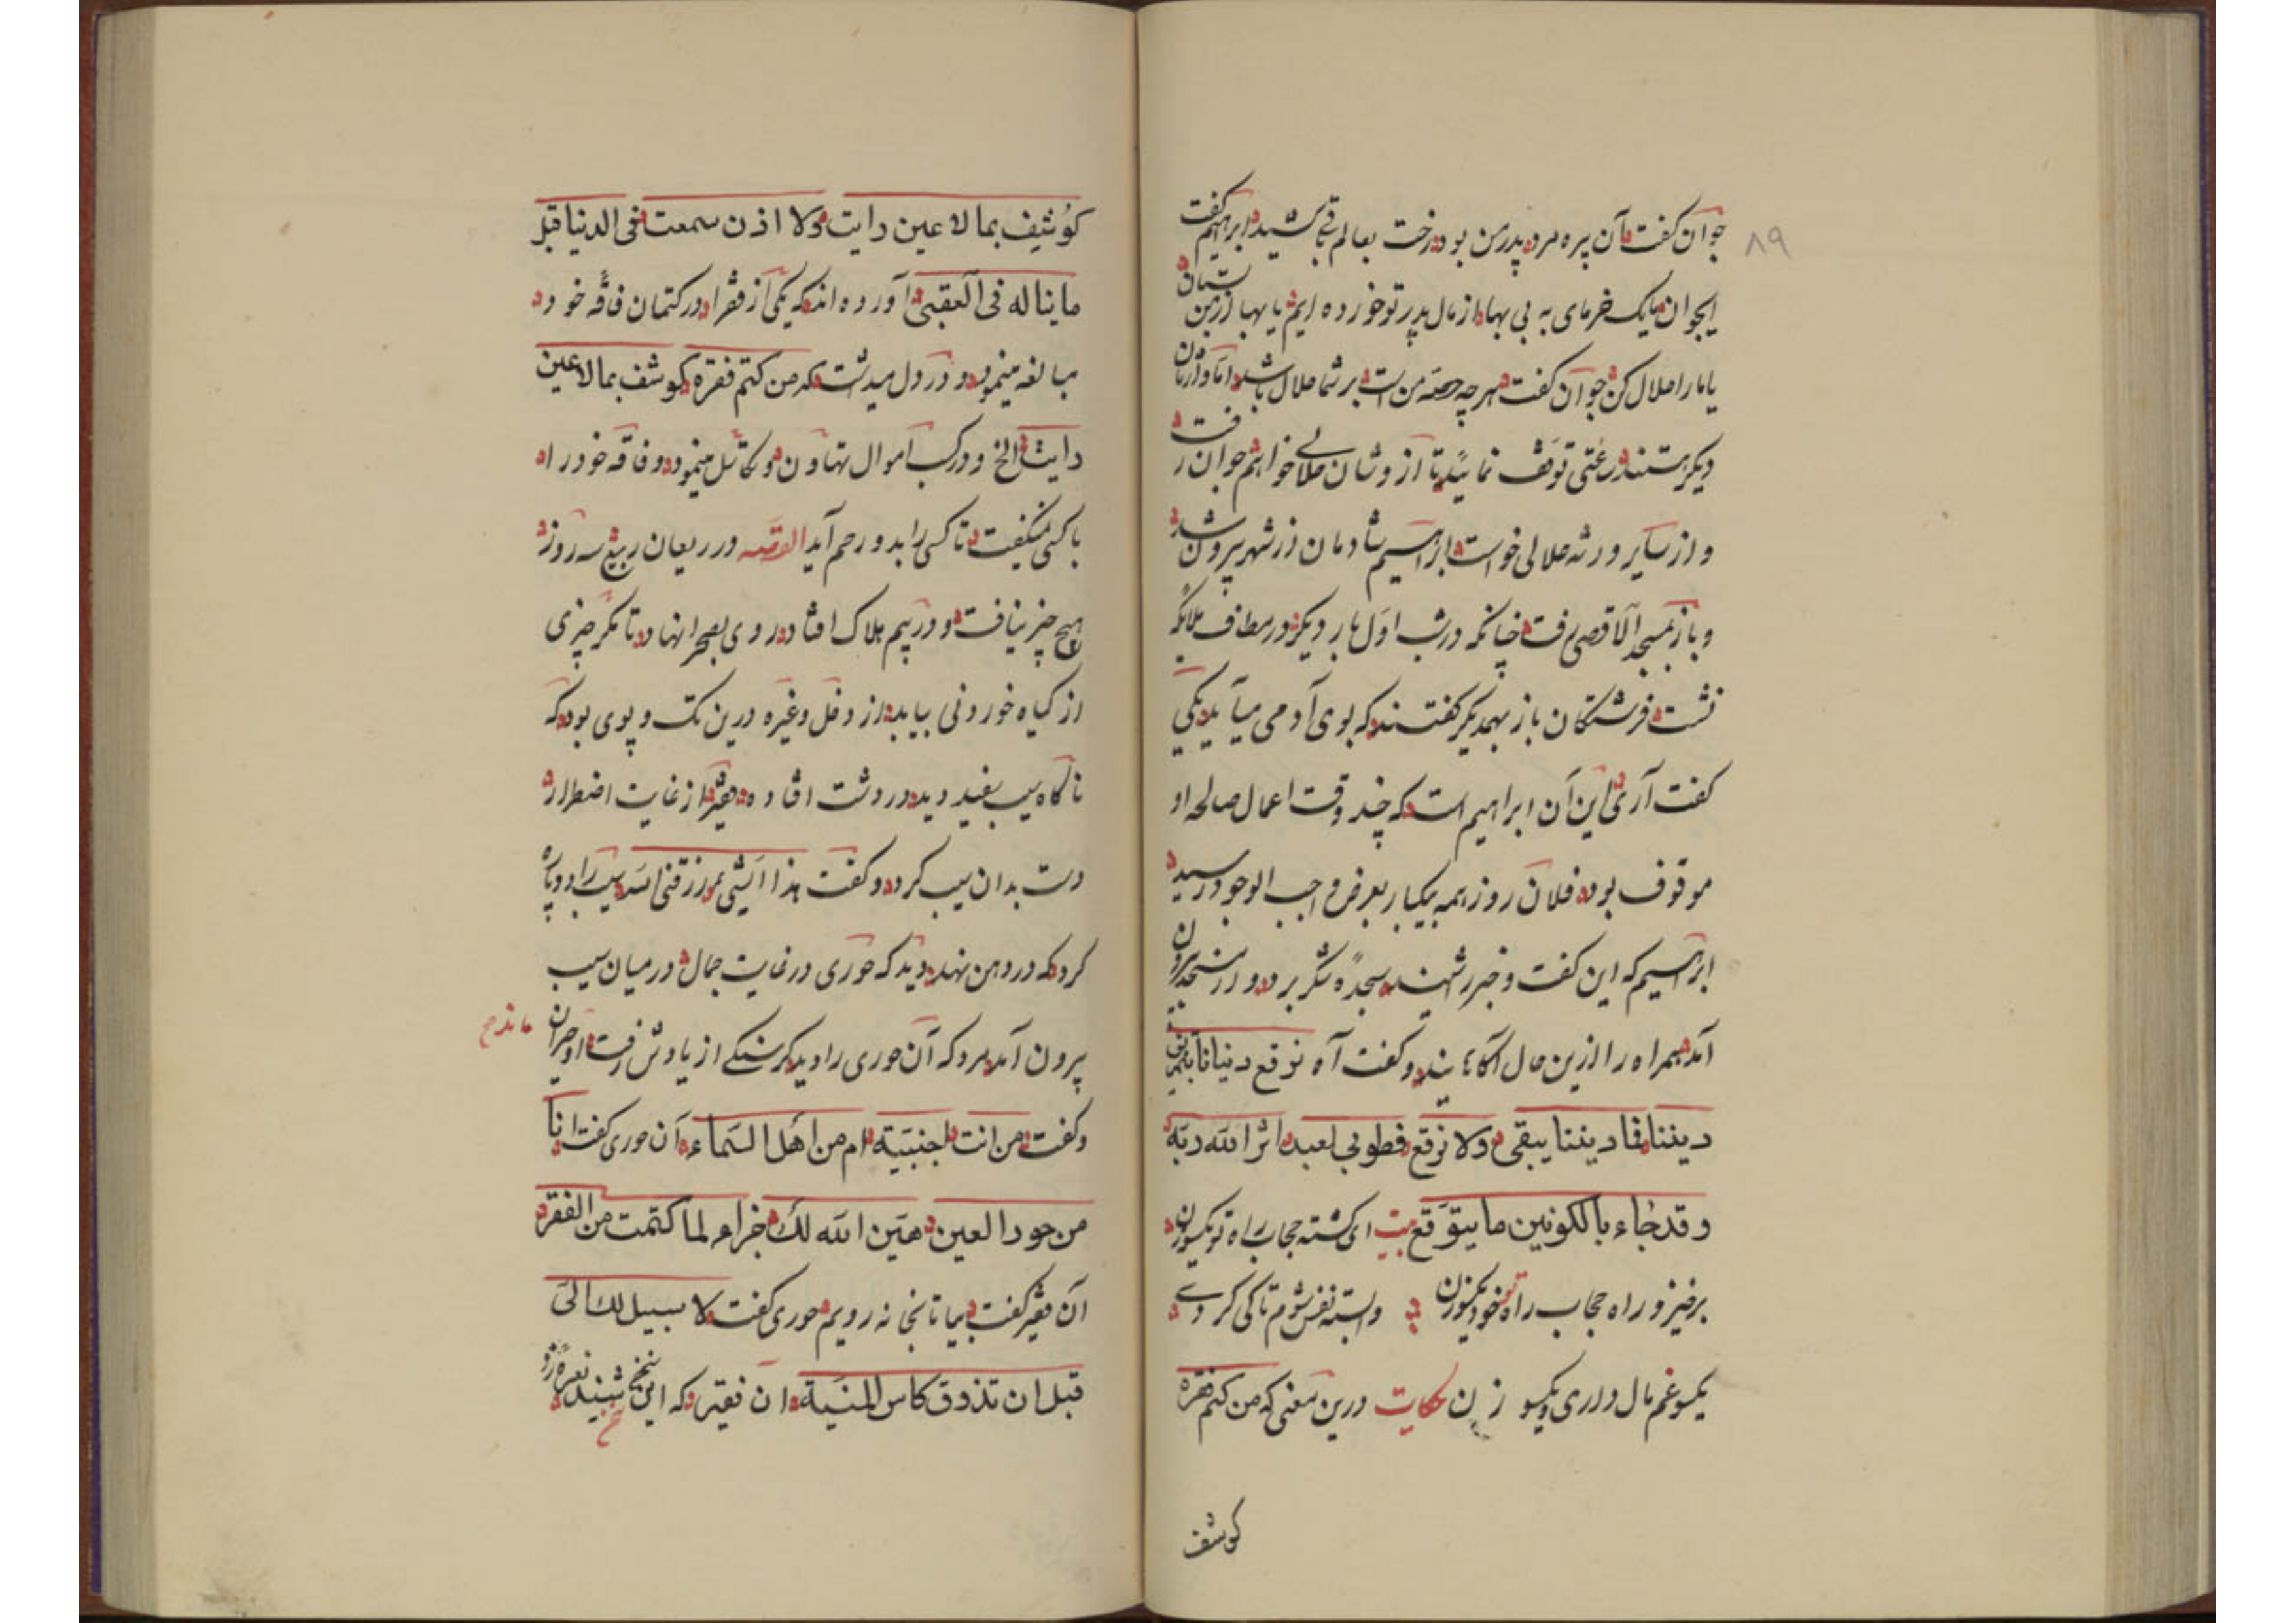 ۸۹
جوان گفت آن پیره مرد پدر من بود رخت بعالم بقا کشید ابراهیم گفت
ایجوان ما یک خرمای به بی بها از مال پدر تو خورده ایم یا بها از من بستان
یا ما را حلال کن جوان گفت هر چه حصه من است بر شما حلال باشد اما وارثان
دیگر هستند ساعتی توقف نمائید تا از وشان حلالی خواهم جوان رفت
و از سایر ورثه حلالی خواست ابراهیم شادمان از شهر بیرون شد
و باز بمسجد الاقصی رفت چنانکه در شب اول بار دیگر در مطاف ملائکه
نشست فرشتگان باز بهمدیگر گفتند که بوی آدمی میآید یکی
گفت آری این آن ابراهیم است که چند وقت اعمال صالحه او
موقوف بود فلان روز همه بیکبار بعرض واجب الوجود رسید
ابراهیم که این گفت و خبر شنید سجده شکر برد و از مسجد بیرون
آمد همراه را ازین حال آگاهانید و گفت آه نرقع دنیانا بتمزیق
دیننا فلا دیننا یبقی ولا نرقع فطوبی لعبد اثر الله ربه
وقد جاء بالکونین ما یتوقع بیت ای کشته حجاب راه تو یکسر زن
برخیز و راه حجاب راه خود یکسو زن وابسته نفس شوم تا کی کردی
یکسو غم مال داری و یکسو زن حکایت درین معنی که من کتم فقره
کوشف
کوشف بما لا عین رایت ولا اذن سمعت فی الدنیا قبل
ما یناله فی العقبی آورده اند که یکی از فقرا در کتمان فاقه خود
مبالغه مینمود و در دل میداشت که من کتم فقره کوشف بما لا عین
رایت الخ و در کسب اموال تهاون و تکاسل مینمود و فاقه خود را
با کسی نمیگفت تا کسی را بدو رحم آید القصه در ریعان ربیع سه روز
هیچ چیز نیافت و در بیم هلاک افتاد روی بصحرا نهاد تا مگر چیزی
از گیاه خوردنی بیابد از دفل و غیره درین تک و پوی بود که
ناگاه سیب سفید دید در دشت افتاده فقیر از غایت اضطرار
دست بدان سیب کرد و گفت هذا الشئ مم رزقنی الله سیب را دو پاره
کرد که در دهن نهد دید که حوری در غایت جمال در میان سیب
بیرون آمد مرد که آن حوری را دید گرسنگی از یادش رفت و حیران
ماند صح
و گفت من انت اجنبیة ام من اهل السماء آن حوری گفت انا
من حور العین هیّن الله لک جزاء لما کتمت من الفقر
آن فقیر گفت بیا تا بخانه رویم حوری گفت لا سبیل لک الیّ
قبل ان تذوق کاس المنیة ان فقیر که این سخن شنید نعره زد